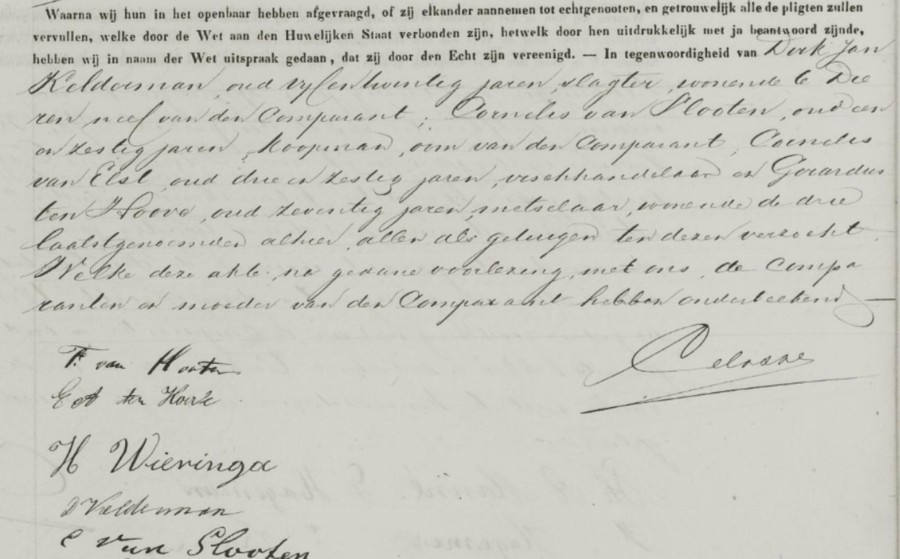 Waarna wij hun in het openbaar hebben afgevraagd, of zij elkander aannemen tot echtgenooten, en getrouwelijk alle de pligten zullen
vervullen, welke door de Wet aan den Huwelijken Staat verbonden zijn, hetwelk door hen uitdrukkelijk met ja beantwoord zijnde,
hebben wij in naam der Wet uitspraak gedaan, dat zij door den Echt zijn vereenigd. — In tegenwoordigheid van Derk Jan
Kelderman, oud vyfentwentig jaren, slagter, wonende te Die
ren neef van den Comparant; Cornelis van Slooten, oud een
en zestig jaren, Koopman, oom van den Comparant, Cornelis
van Elst, oud drie en zestig jaren, vischhandelaar en Gerardus
ten Hoove, oud zeventig jaren, metselaar, wonende de drie
laatstgenoemden alhier, allen als getuigen ten dezen verzocht.
Welke deze akte, na gedane voorlezing, met ons, de compa
ranten en moeder van den Comparant hebben onderteekend
F. van Hooten
ten
H Wieringa
Kelderman
C van Slooten